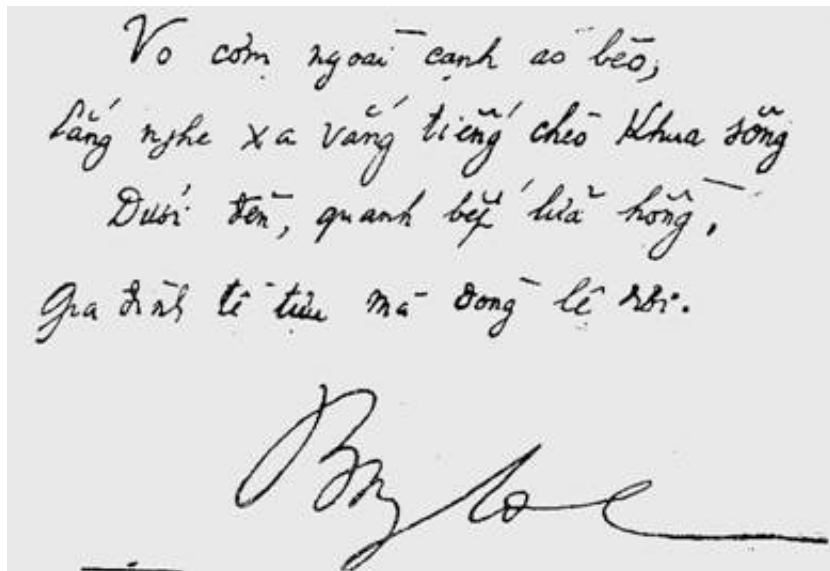 Vo cơm ngoài cạnh ao bèo,
Lắng nghe xa vẳng tiếng chèo khua sông
Dưới đèn, quanh bếp lửa hồng,
Gia đình tề tựu mà dòng lệ rơi.